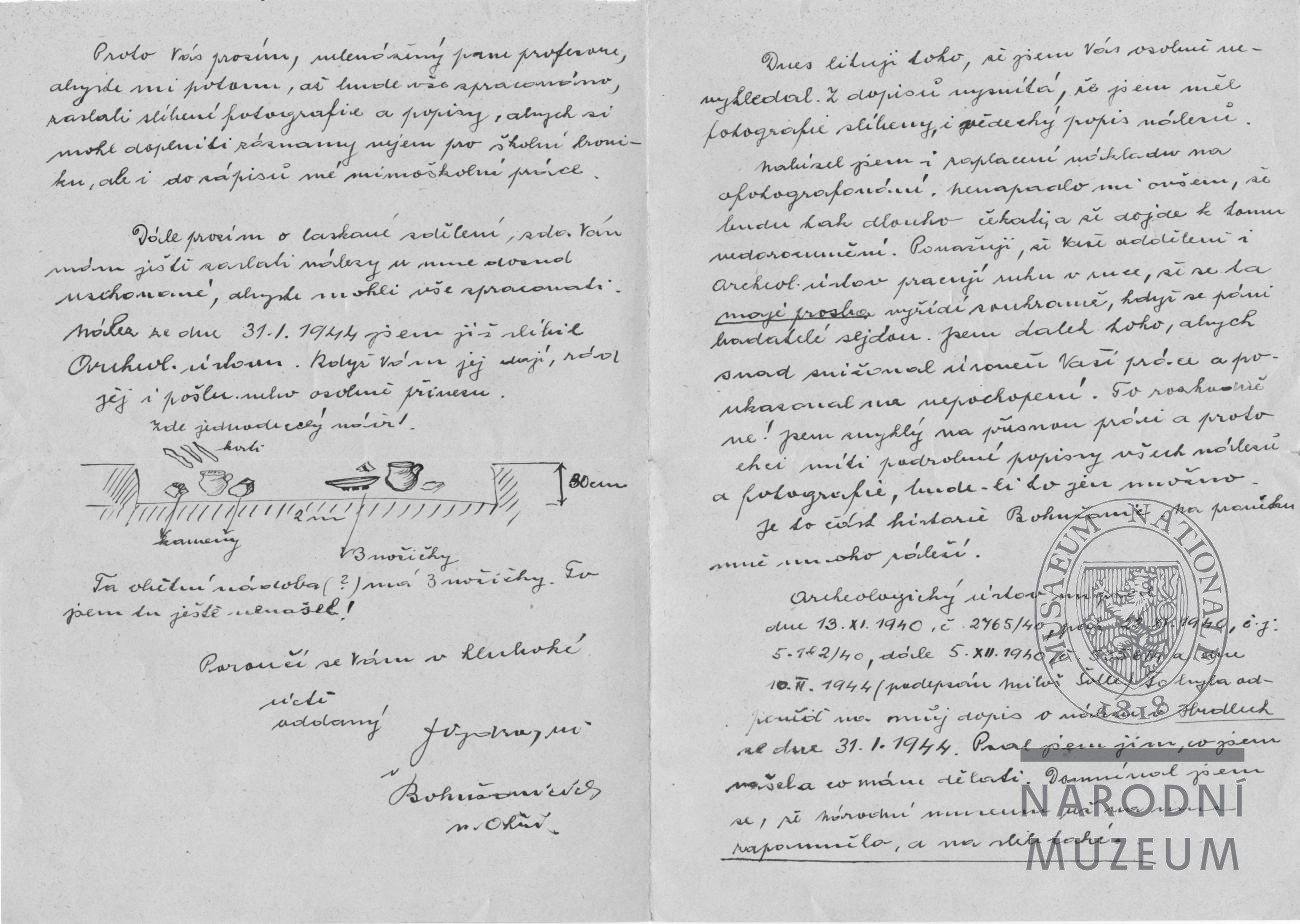 Proto Vás prosím, velevážený pane profesore,
abyste mi potom, až bude vše spracováno,
zaslali slíbené fotografie a popisy, abych si
mohl doplniti záznamy nejen pro školní kroni-
ku, ale i do zápisů mé mimoškolní práce.
Dále prosím o laskavé sdělení, zda Vám
mám ještě zaslati nálezy u mne dosud
uschované, abyste mohli vše spracovati.
Nález ze dne 31.1.1944 jsem již slíbil
Archeol. ústavu. Když Vám jej dají, rád
jej i pošlu nebo osobně přinesu.
Zde jednoduchý náčrt.
kosti
80cm
2 m
kameny
3 nožičky
Ta obětní nádoba (?) má 3 nožičky. To
jsem tu ještě nenašel!
Poroučí se Vám v hluboké
úctě
oddaný
Bohušovicích
n. Ohří.
Dnes lituji toho, že jsem Vás osobně ne-
vyhledal. Z dopisů vysvítá, že jsem měl
fotografie slíbeny, i vědecký popis nálezů.
Nabízel jsem i zaplacení nákladu na
ofotografování. Nenapadlo mi ovšem, že
budu tak dlouho čekati, a že dojde k tomu
nedorozumění. Považuji, že Vaše oddělení i
Archeol. ústav pracují ruku v ruce, že se ta
moje prosba vyřídí soukromě, když se páni
badatelé sejdou. Jsem dalek toho, abych
snad snižoval úroveň Vaší práce a po-
ukazoval na nepochopení. To rozhodně
ne! Jsem zvyklý na přesnou práci a proto
chci míti podrobné popisy všech nálezů
a fotografie, bude-li to jen možno.
Je to část historie Bohušovic, na
mně mnoho záleží.
Archeologický ústav
dne 13.XI.1940, č 2765/40, 1940, č.j.
5-182/40, dále 5.XII.1940 a dne
10.II.1944 (podepsán Miloš Šolle) to byla od-
pověď na můj dopis o nálezu v Hrdlech
ze dne 31.1.1944. Psal jsem jim, co jsem
našel a co mám dělati. Domníval jsem
se, že Národní museum už na mne
zapomnělo, a na slib také.
MUSAEUM NATIONALE
1818
NÁRODNÍ
MUZEUM